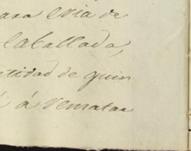 para esia de
Caballada,
ntidad de quin
á rematar